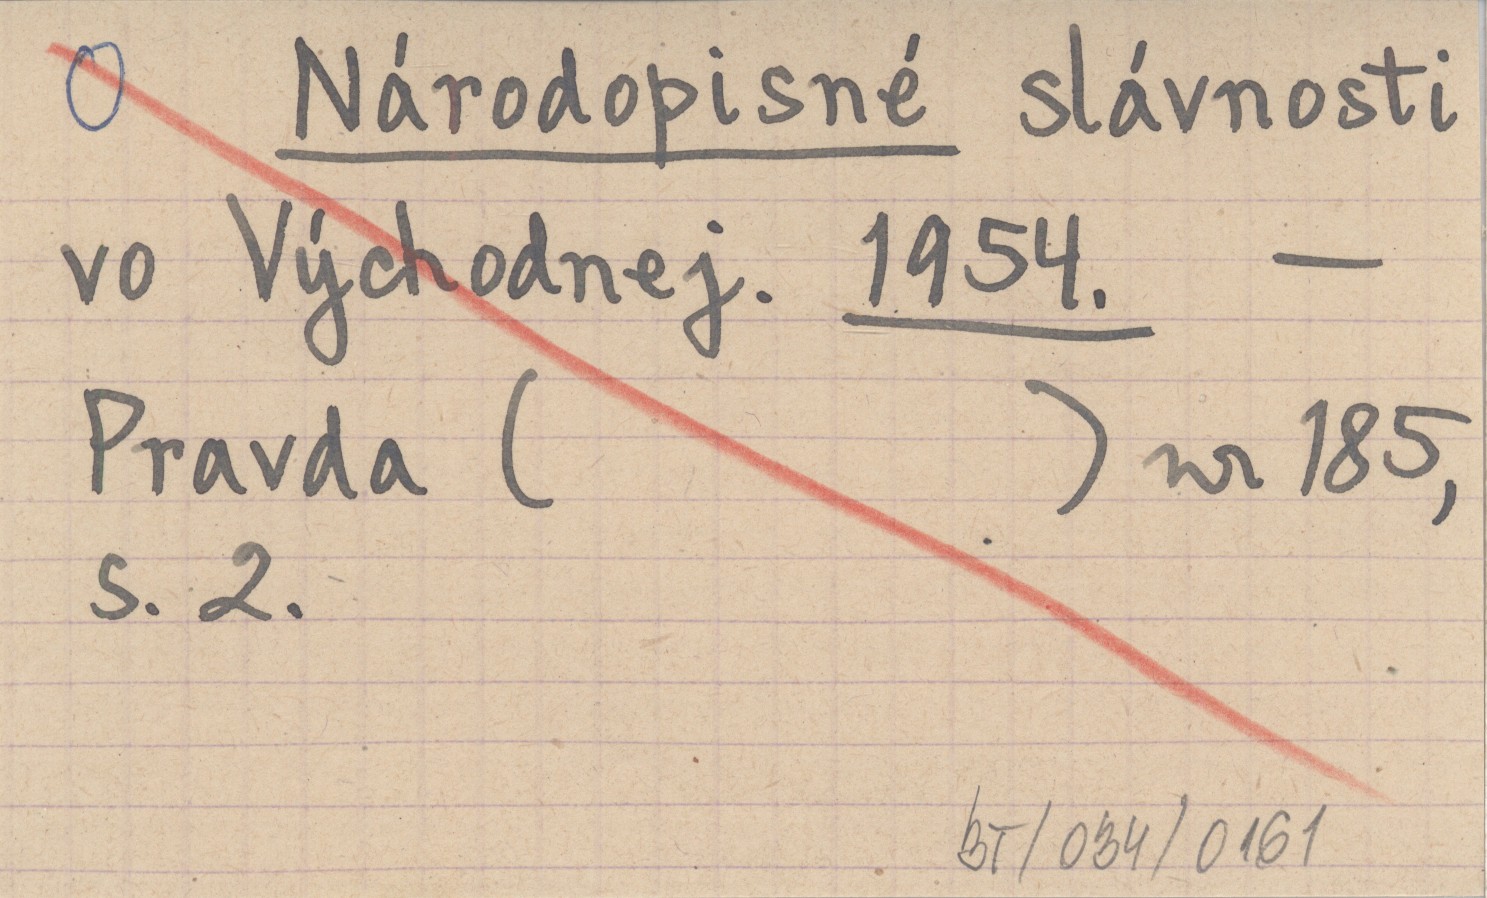 O Národopisné slávnosti
vo Východnej. 1954. —
Pravda ( ) nr 185,
s. 2.
BT/034/0161